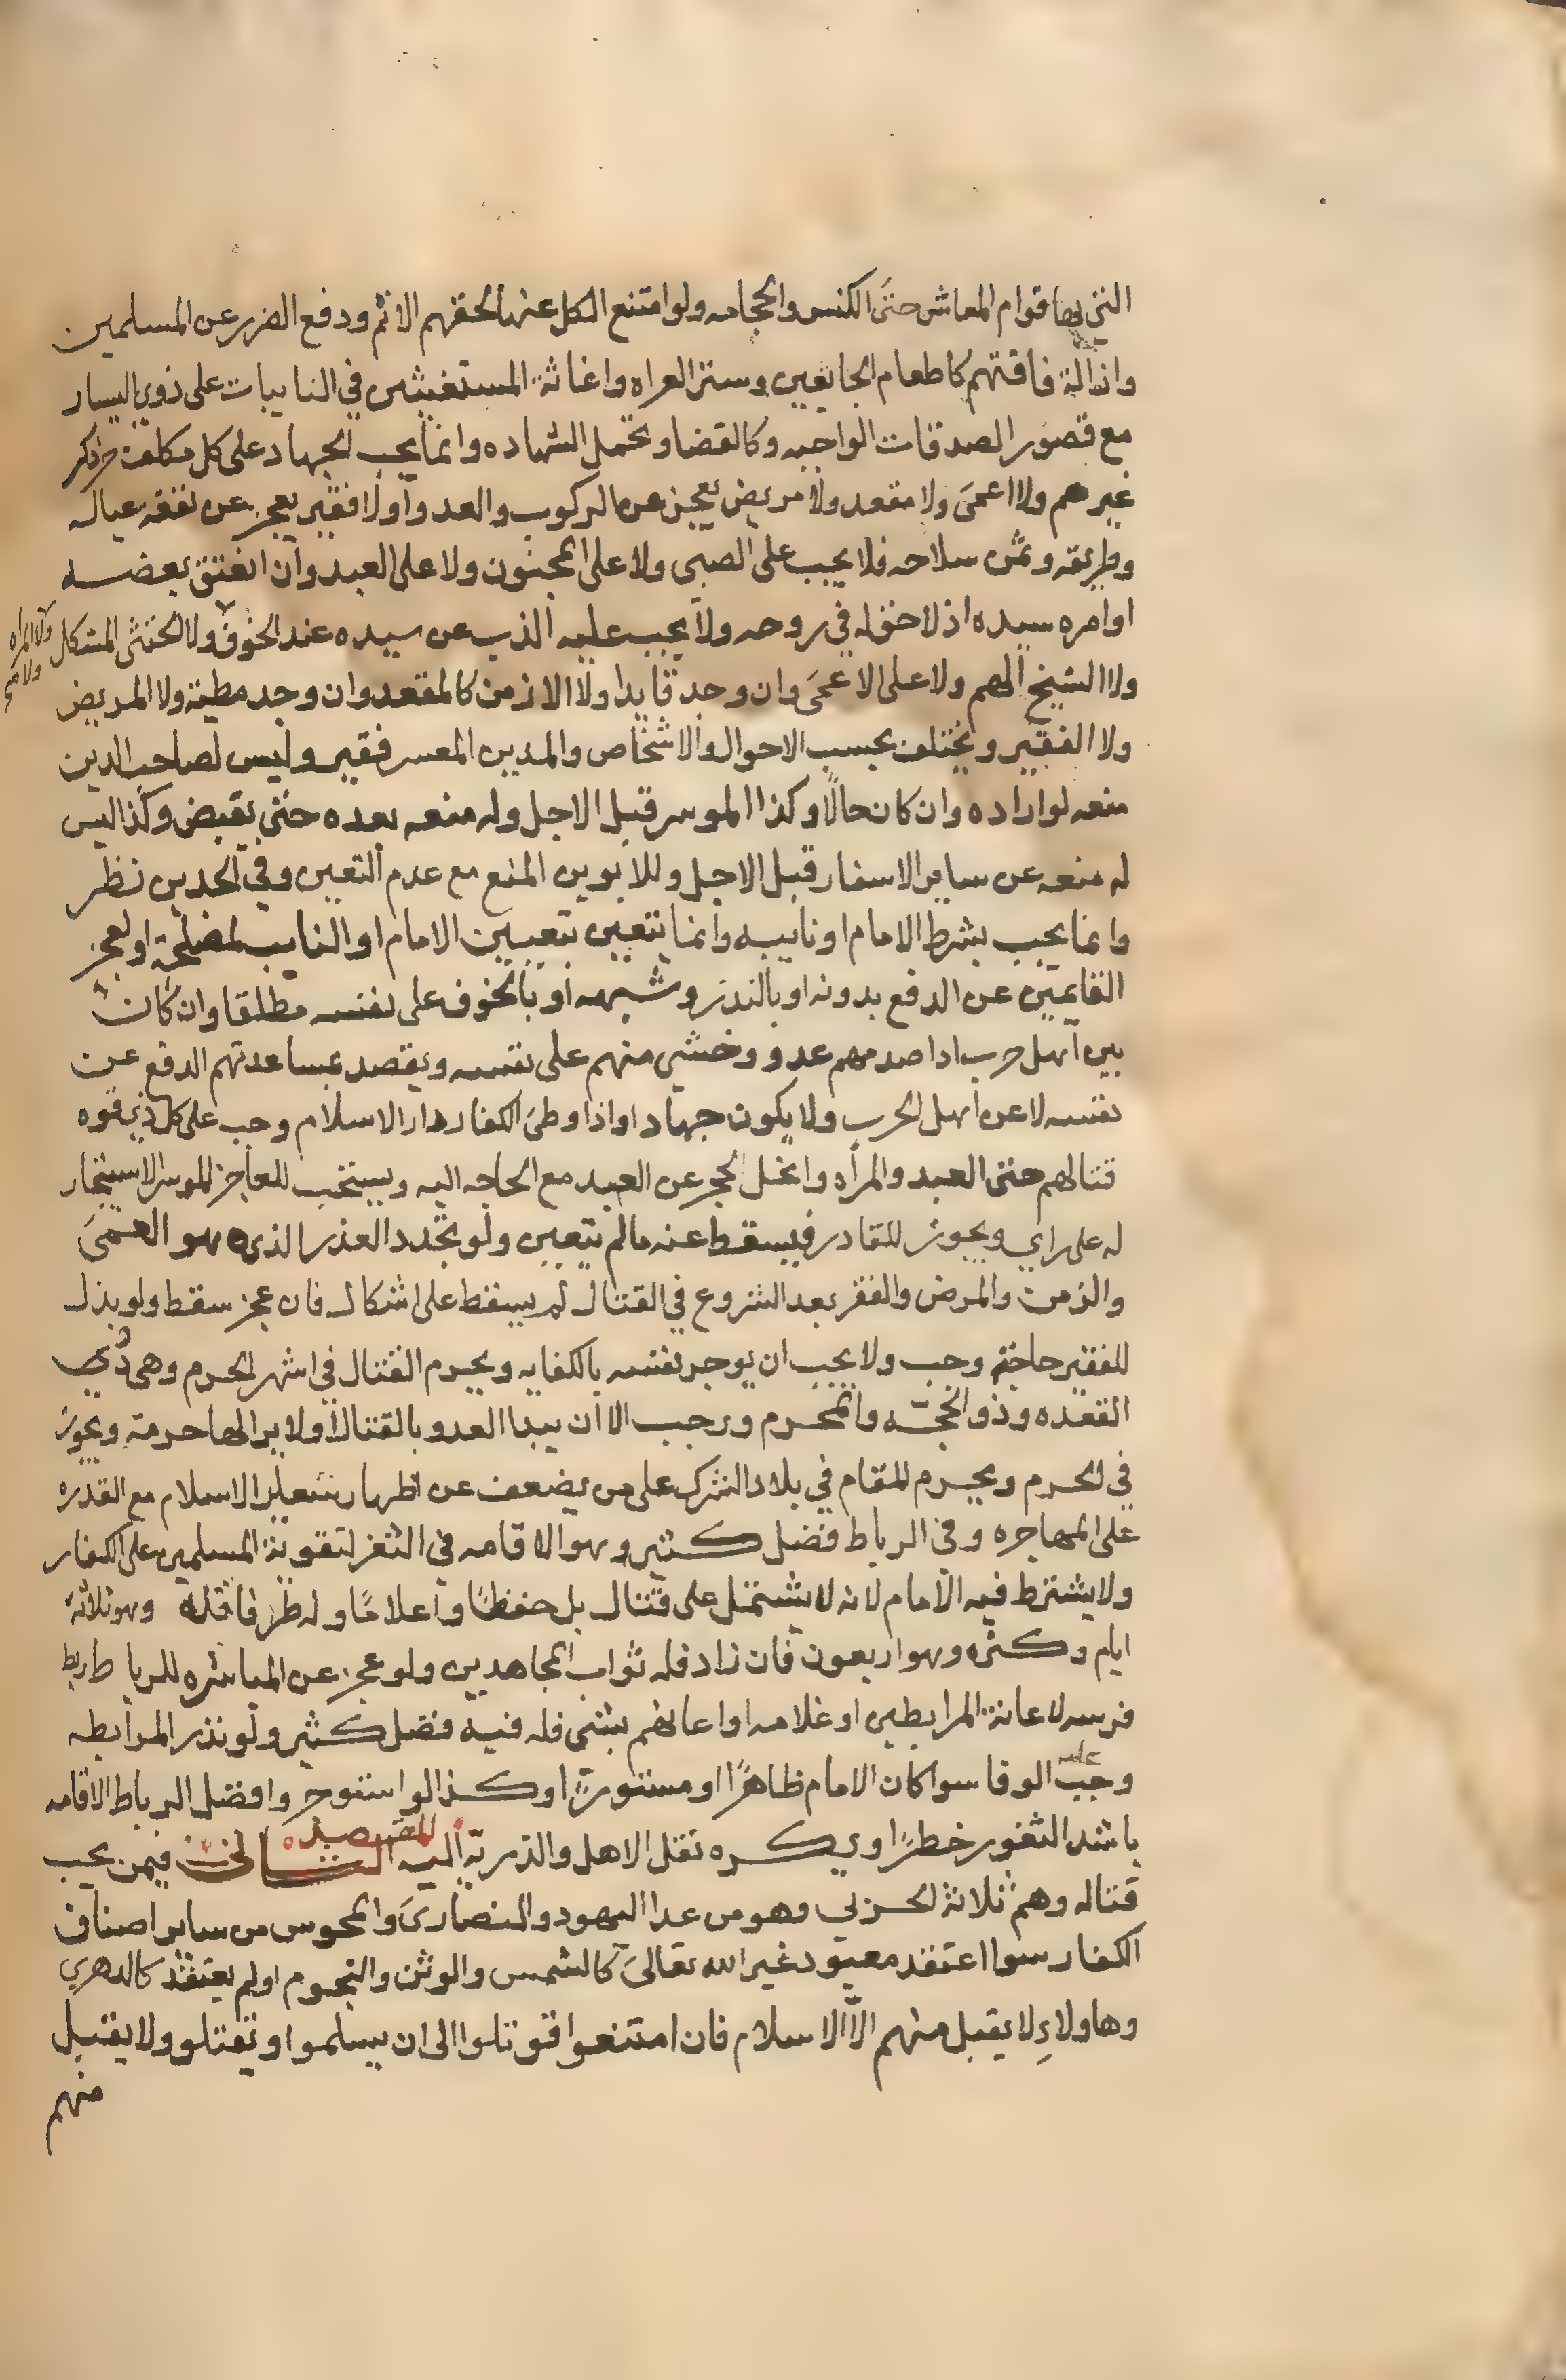 التي بها قوام المعاش حتى الكنس والحجامه ولو امتنع الكل عنها لحقهم الاثم ودفع الضرر عن المسلمين
وازالة فاقتهم كاطعام الجايعين وستر العراه واغاثة المستغيثين في النايبات على ذوي اليسار
مع قصور الصدقات الواجبه وكالقضا وتحمل الشهاده وانما يجب الجهاد على كل مكلف حر ذكر
غير هم ولا اعمى ولا مقعد ولا مريض يعجز عن الركوب والعدو ولا فقير يعجز عن نفقه عياله
وطريقه وثمن سلاحه فلا يجب على الصبي ولا على المجنون ولا على العبد وان انعتق بعضه
او امره سيده اذ لا حق له في روحه ولا يجب عليه الذب عن سيده عند الخوف ولا الخنثى المشكل ولا المراه
ولا الشيخ الهم ولا على الاعمى وان وجد قايدا ولا الازمن كالمقعد وان وجد مطية ولا المريض
ولا الفقير ويختلف بحسب الاحوال والاشخاص والمدين المعسر فقير وليس لصاحب الدين
منعه لو اراده وان كان حالًا وكذا الموسر قبل الاجل وله منعه بعده حتى يقبض وكذا ليس
له منعه عن ساير الاسفار قبل الاجل وللابوين المنع مع عدم التعين وفي الجدين نظر
وانما يجب بشرط الامام او نايبه وانما يتعين بتعيين الامام او النايب لمصلحة او لعجز
القايمين عن الدفع بدونه او بالنذر وشبهه او بالخوف على نفسه مطلقا وان كان
بين اهل حرب اذا صدمهم عدو وخشي منهم على نفسه ويقصد بمساعدتهم الدفع عن
نفسه لا عن اهل الحرب ولا يكون جهادا واذا وطئ الكفار دار الاسلام وجب على كل ذي قوه
قتالهم حتى العبد والمرأه وانحل الحجر عن العبد مع الحاجه اليه ويستحب للعاجز الموسر الاستيجار
له على راي ويجوز للقادر فيسقط عنه ما لم يتعين ولو تجدد العذر الذي هو العمى
والزمن والمرض والفقر بعد الشروع في القتال لم يسقط على اشكال فان عجز سقط ولو بذل
للفقير حاجته وجب ولا يجب ان يوجر نفسه بالكفايه ويحرم القتال في اشهر الحرم وهي ذي
القعده وذو الحجّه والمحرم ورجب الا ان يبدا العدو بالقتال او لا يرا لها حرمة ويجوز
في الحرم ويحرم المقام في بلاد الشرك على من يضعف عن اظهار شعاير الاسلام مع القدره
على المهاجره وفي الرباط فضل كثير وهو الاقامه في الثغر لتقوية المسلمين على الكفار
ولا يشترط فيه الامام لانه لا يشتمل على قتال بل حفظًا واعلامًا وله طرفا قله وهو ثلاثة
ايام وكثره وهو اربعون فان زاد فله ثواب المجاهدين ولو عجز عن المباشره للرباط ربط
فرسه لاعانة المرابطين او غلامه او اعانهم بشئ فله فيه فضل كثير ولو نذر المرابطه
وجب عليه الوفا سوا كان الامام ظاهرًا او مستورًا وكذا لو استوجر وافضل الرباط الاقامه
باشد الثغور خطرًا ويكره نقل الاهل والذرية اليه المقصد الثاني فيمن يجب
قتاله وهم ثلاثة الحربي وهو من عدا اليهود والنصارى والمجوس من ساير اصناف
الكفار سوا اعتقد معبود غير الله تعالى كالشمس والوثن والنجوم او لم يعتقد كالدهري
وهاولاءِ لا يقبل منهم الّا الاسلام فان امتنعوا قوتلوا الى ان يسلموا او يقتلو ولا يقبل
منهم